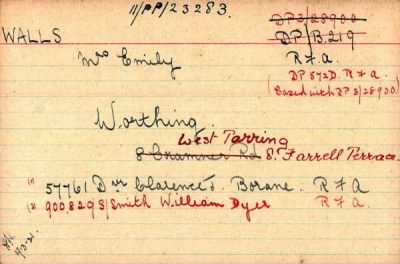 11/PP/23283.
DP3/28900
WALLS
DP/B.219
Mrs Emily
R.F.A.
(DP 572D. R.F.A.
Cased with DP3/28900)
Worthing.
West Tarring
8 Cranmer Rd 8. Farrell Terrace.
(1) 57761 Dvr Clarence J. Borane. R F A
(2) 900,829 S/Smith William Dyer R F A.